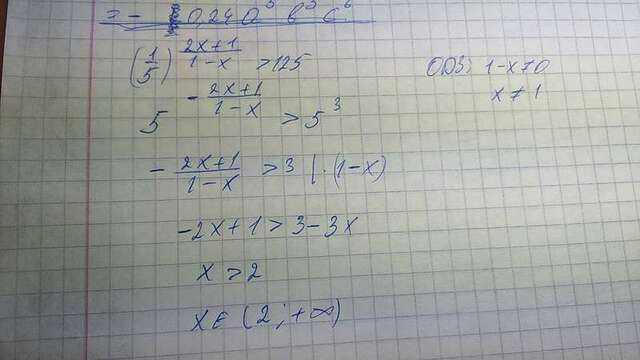 = - 0,24 a³ b³ c⁶
(1/5)^((2x+1)/(1-x)) > 125
ОДЗ: 1-x≠0
x ≠ 1
5^(-(2x+1)/(1-x)) > 5³
- (2x+1)/(1-x) > 3 | · (1-x)
-2x+1 > 3-3x
x > 2
x ∈ (2; +∞)